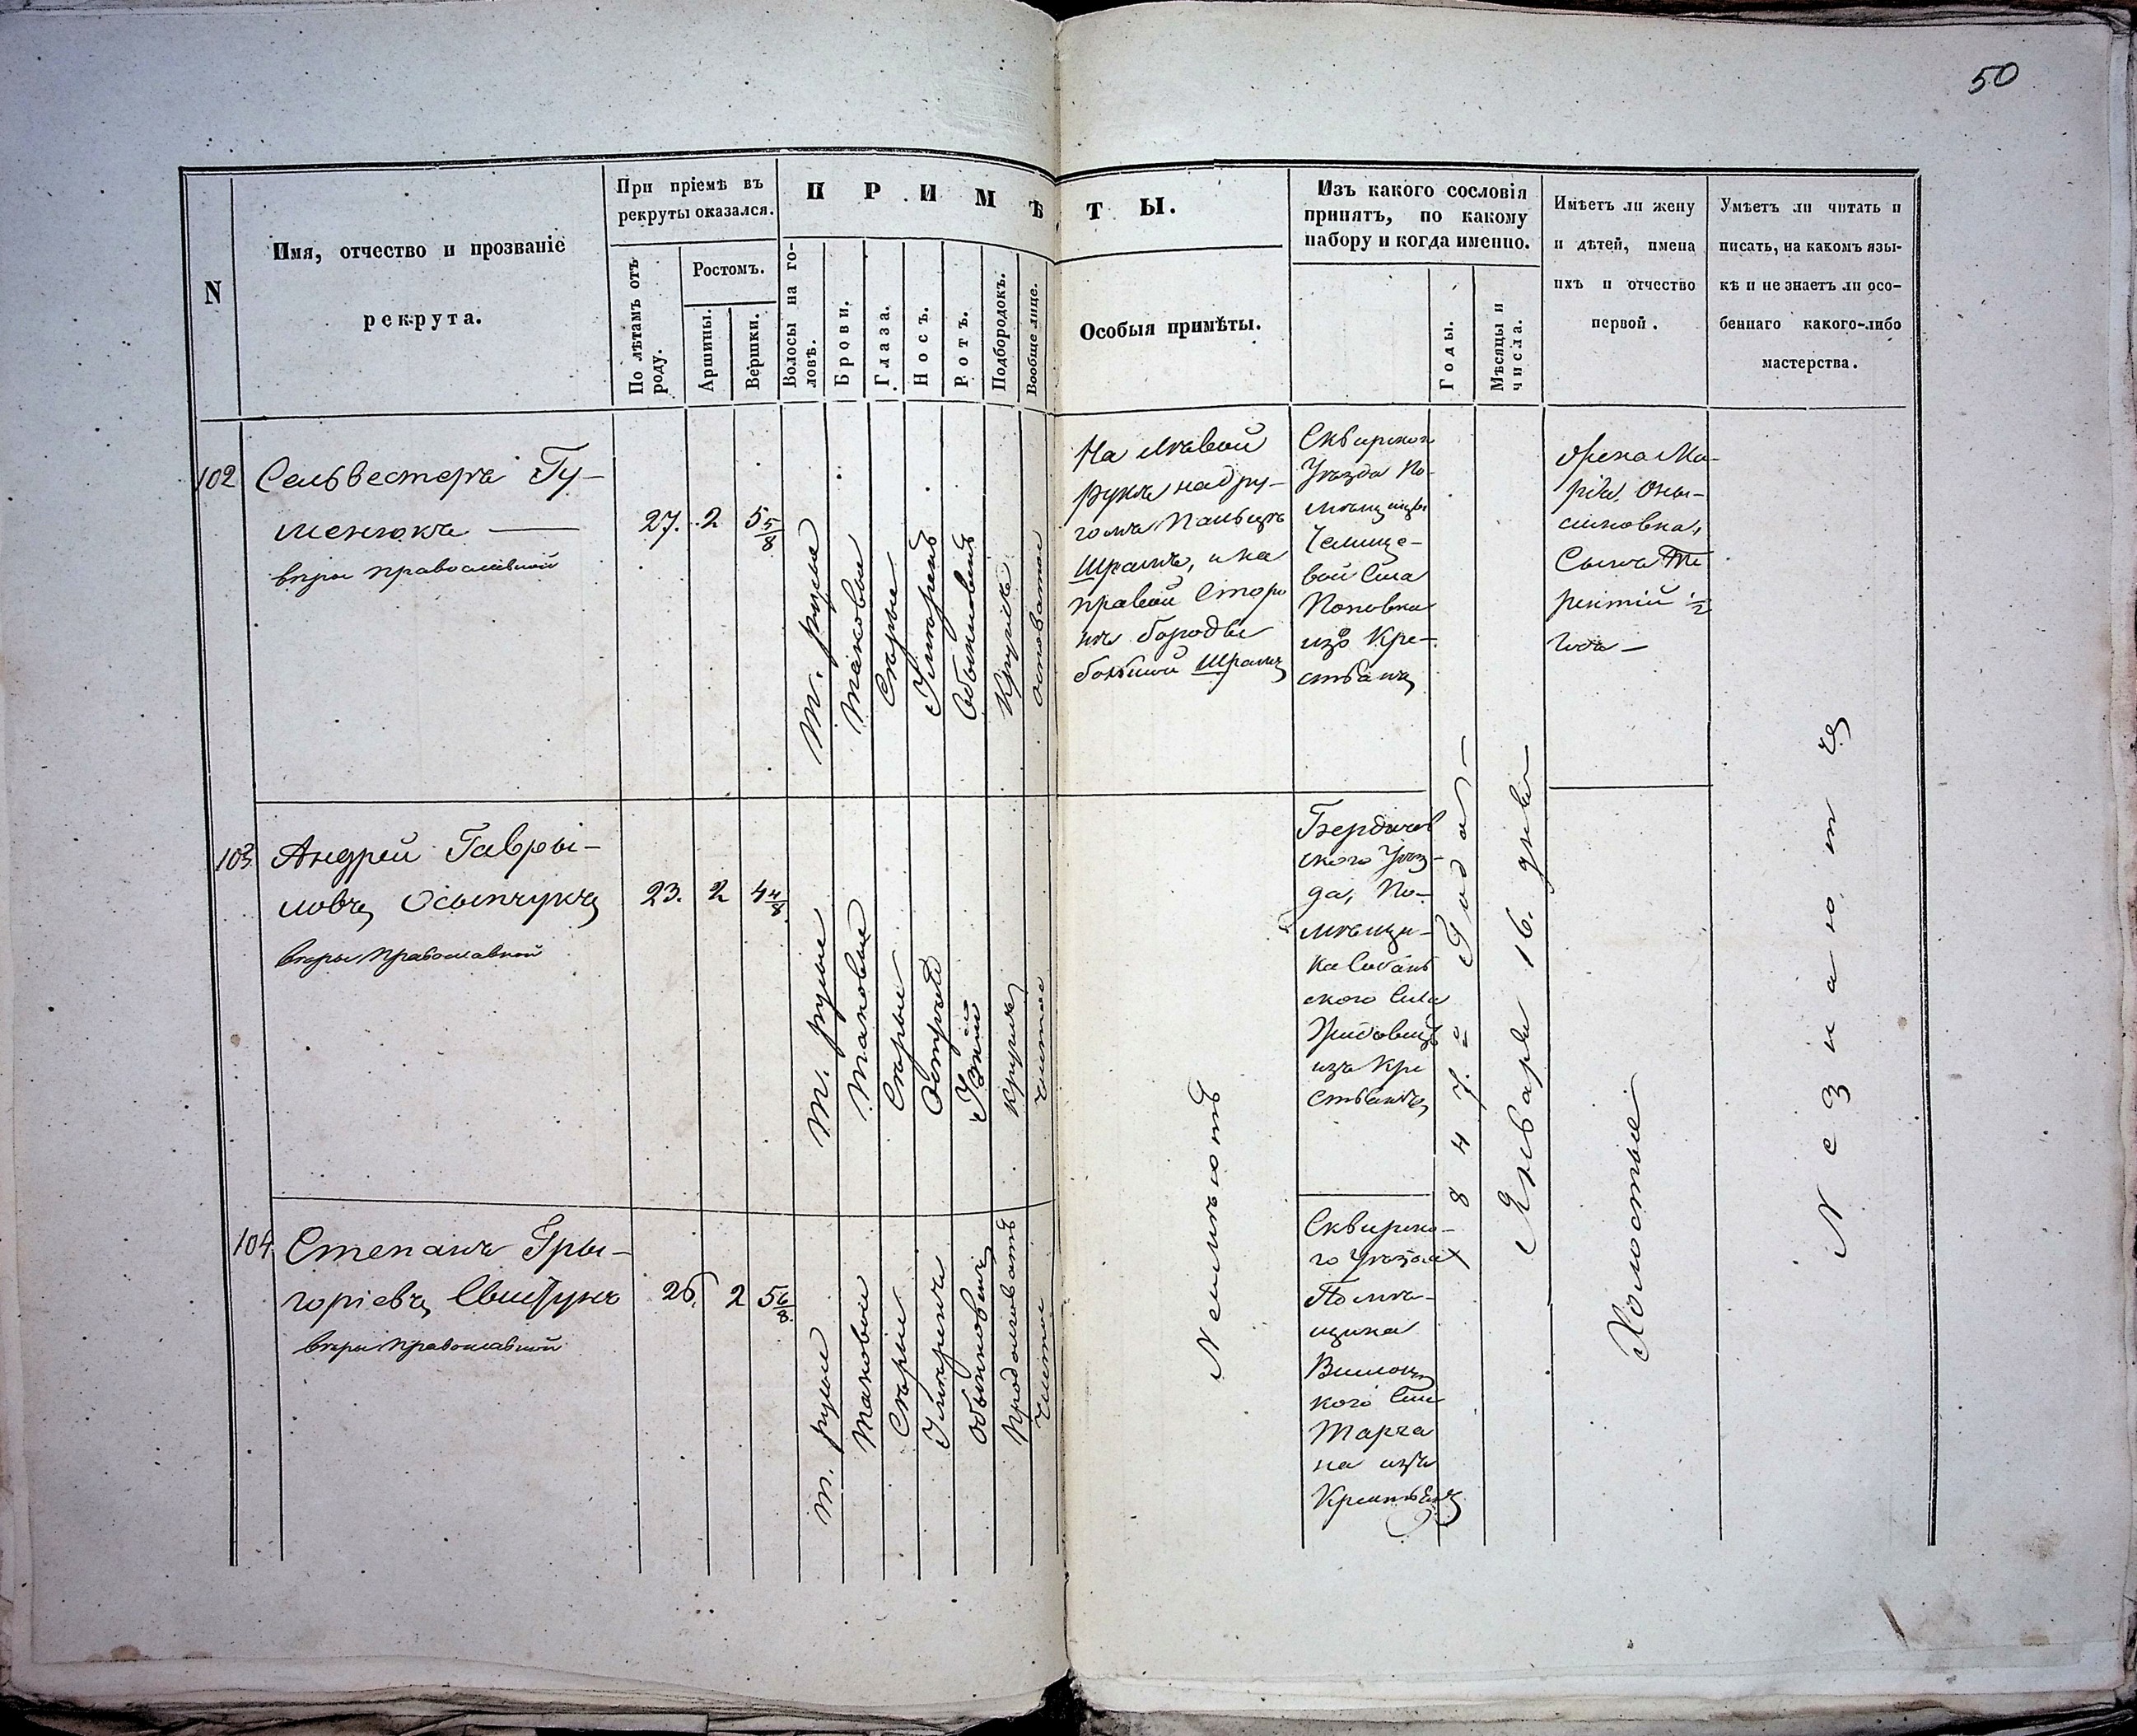 50
N
Имя, отчество и прозваніе
рекрута.
При пріемѣ въ
рекруты оказался.
По лѣтамъ отъ
роду.
Ростомъ.
Аршины.
Вершки.
ПРИМѢТЫ.
Волосы на го-
ловѣ.
Брови.
Глаза.
Носъ.
Ротъ.
Подбородокъ.
Вообще лице.
Особыя примѣты.
Изъ какого сословія
принятъ, по какому
набору и когда именно.
Годы.
Мѣсяцы и
числа.
Имѣетъ ли жену
и дѣтей, имена
ихъ и отчество
первой.
Умѣетъ ли читать и
писать, на какомъ язы-
кѣ и не знаетъ ли осо-
беннаго какого-либо
мастерства.
102
Сельвестеръ Гу-
менюкъ —
вѣры православной
27.
2
5 5/8
т. русые
таковые
Сѣрые
Умѣренъ
Обыкновенъ
Круглъ
На лѣвой
рукѣ на
пальцѣ
Шрамъ, и на
правой Сторо
нѣ бороды
большой Шрамъ
Сквирского
Уѣзда По-
мѣщицы
вой Села
Поповки
изъ Кре-
стьянъ
Жена Ма-
рія
Сынъ Те
рентій 1/2
года —
103.
Андрей Гавры-
ловъ Осыпчукъ
вѣры Православной
23.
2
4 4/8
т. русые
таковые
Сѣрые
Остръ
Узкій
Круглъ
чистое
Бердичев
ского Уѣз-
да, По-
мѣщи-
ка
ского Села
изъ Кре
стьянъ
104
Степанъ Гры-
горіевъ
вѣры Православной
26.
2
5 6/8
т. русые
таковые
Сѣрые
Умѣренъ
Обыкновенъ
Продолговатъ
Чистое
Неимѣютъ
Сквирско-
го Уѣзда
Помѣ-
щика
кого Села
на изъ
Крестьянъ
847.й Года —
Января 16. дня
Холостые
Незнаютъ